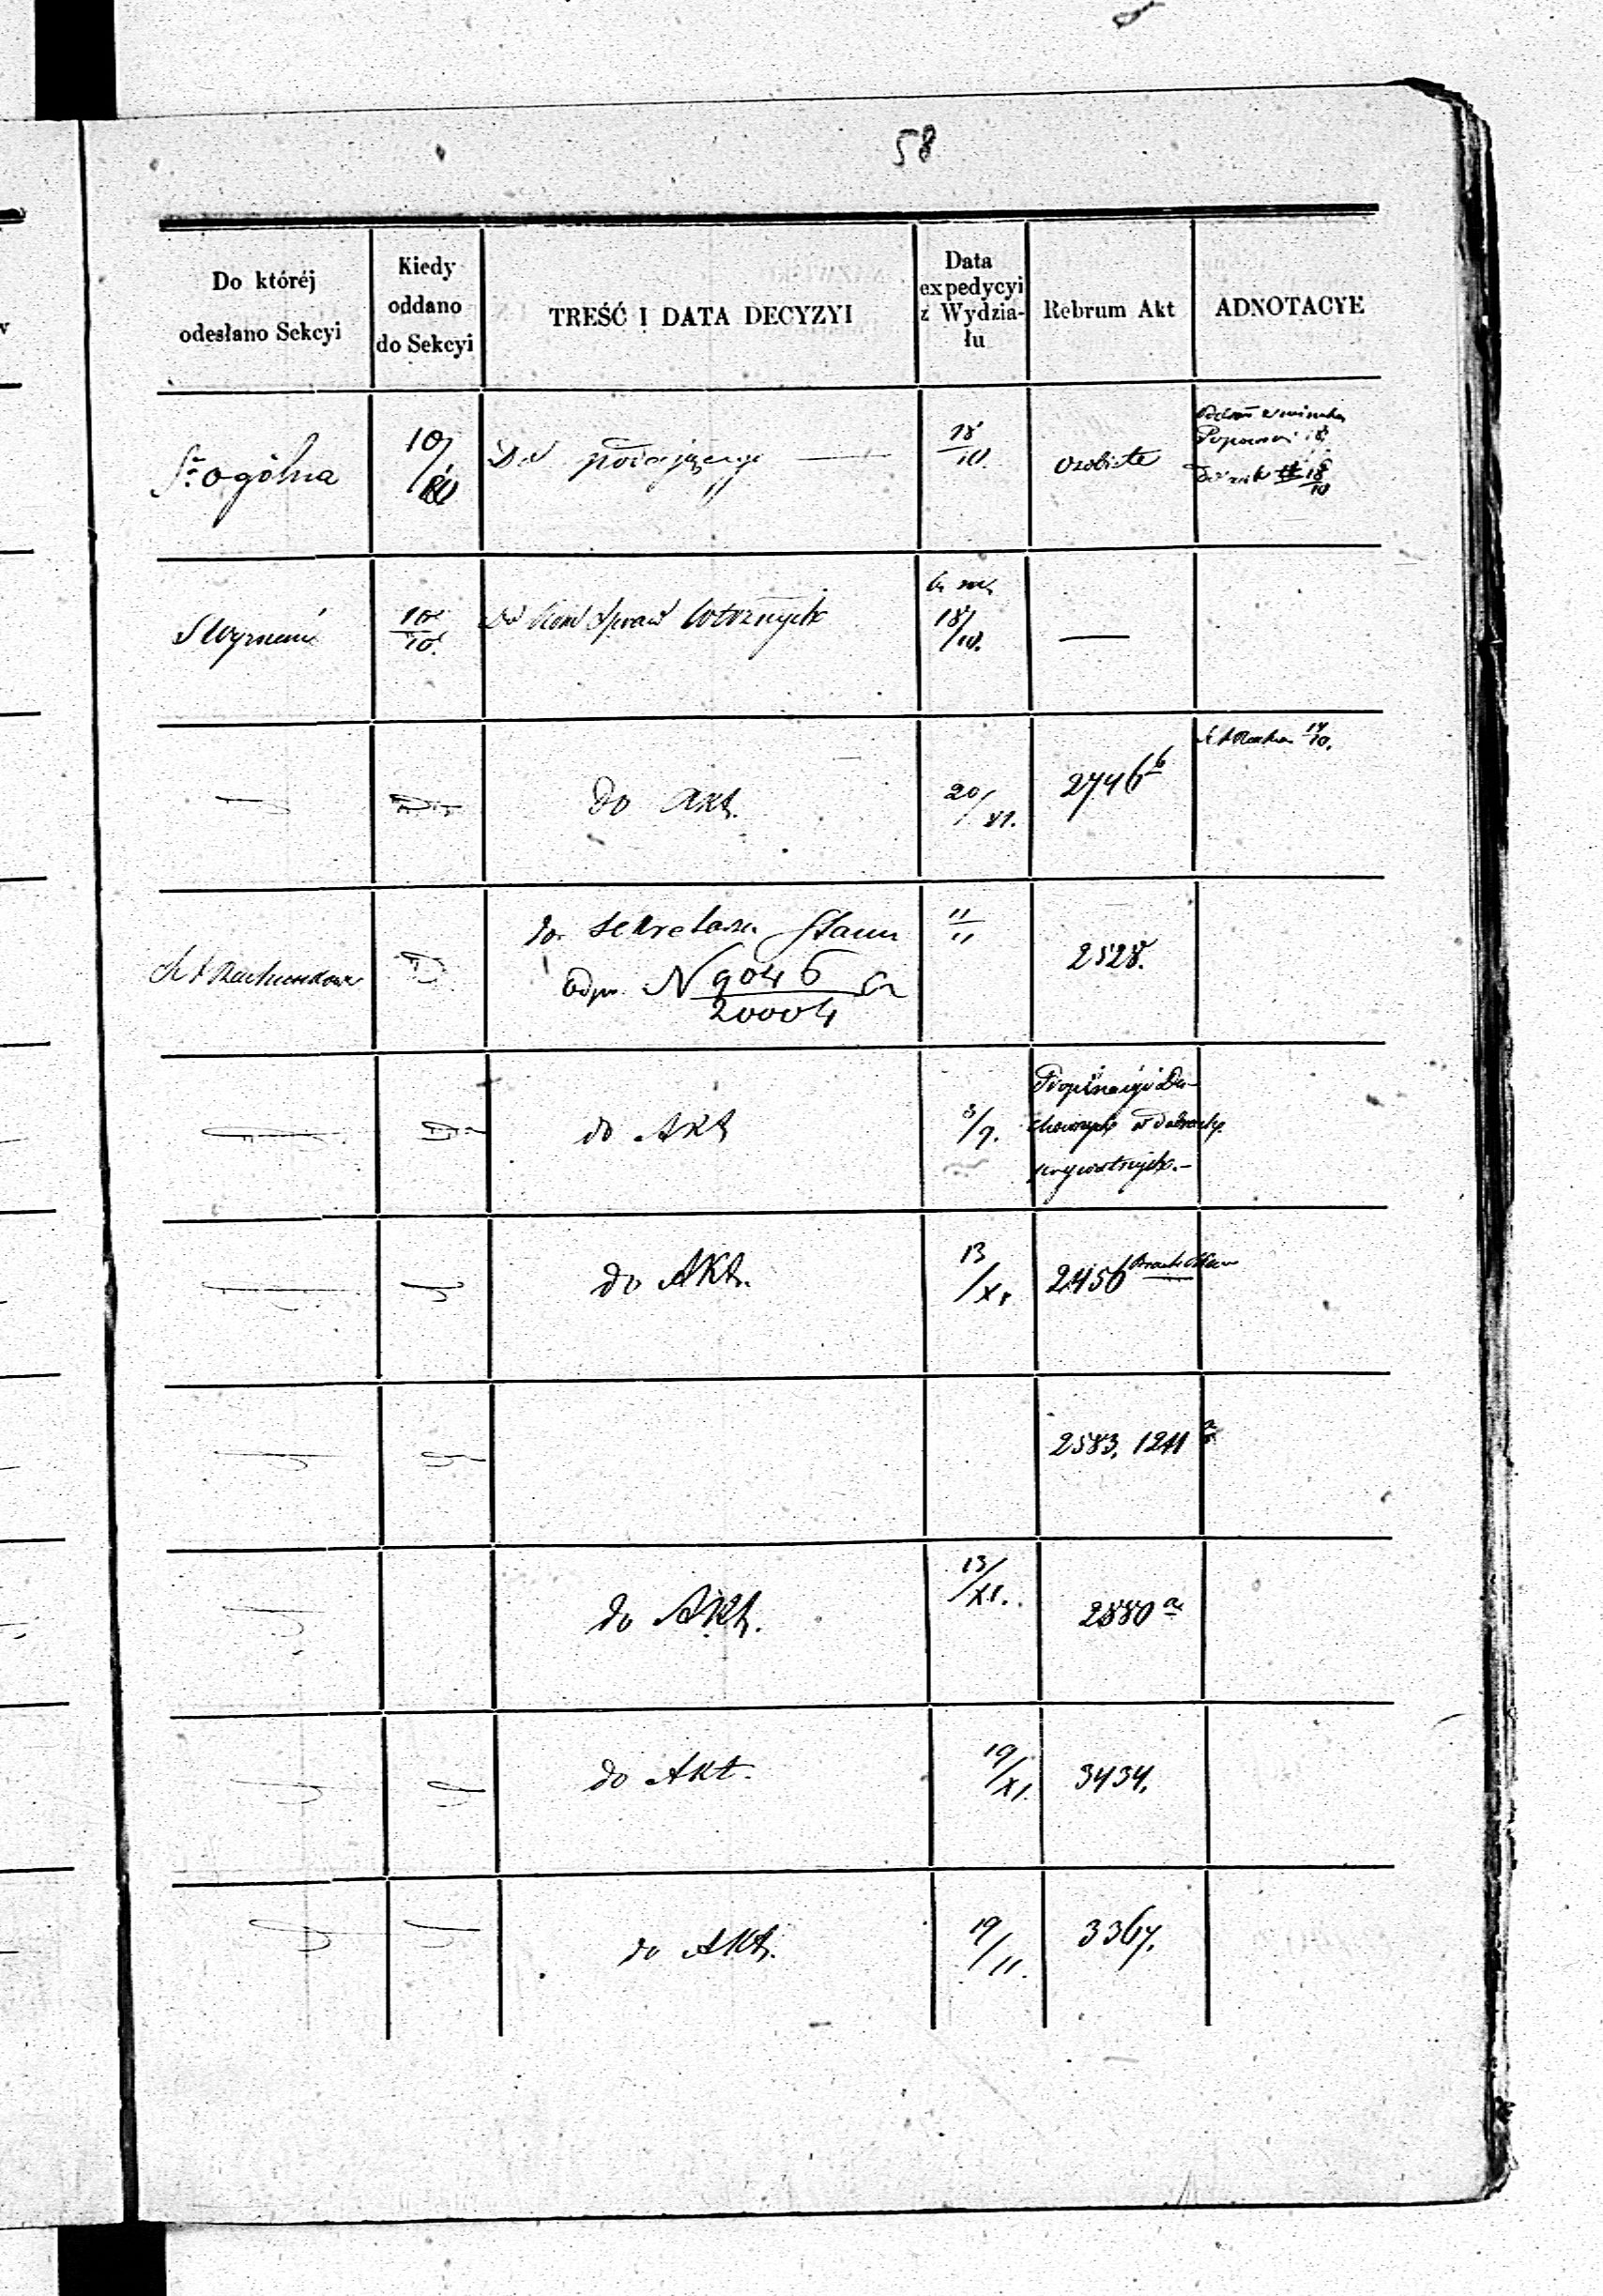 58
Do któréj
odesłano Sekcyi
Kiedy
oddano
do Sekcyi
TREŚĆ I DATA DECYZYI
Data
expedycyi
z Wydzia-
łu
Rebrum Akt
ADNOTACYE
S: ogólna
10/10
Do podającego
18/10.
osobiste
18/10
10/10.
Do Kom Spraw Wewnznych
18/10.
do Akt.
20/XI.
2746 b
17/10.
do Sekretarza Stanu
Odpw. N 9046/20004
11/11
2528.
do Akt
3/9.
Propinacyi Du-
chownych w dobrach
prywatnych.-
do Akt.
13/XI.
2456
2583. 1211 a
do Akt.
13/XI.
2880 a
do Akt.
19/XI.
3434.
do Akt.
19/11.
3367.